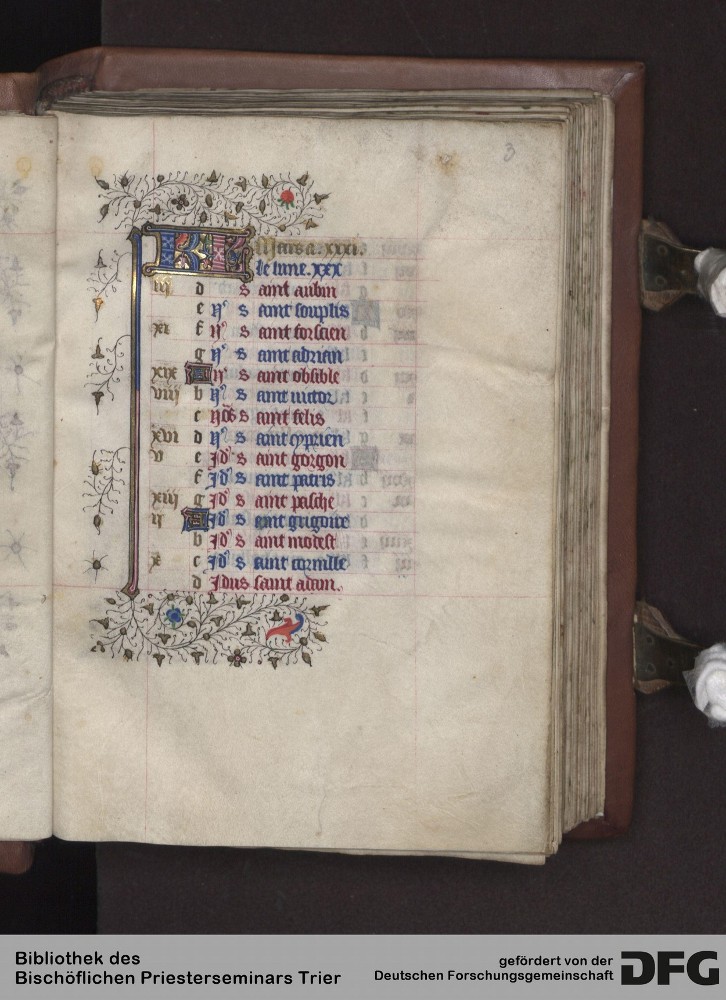 3
Mars a. xxxi.
le lune. xxx
iii d s aint aubin
e s aint souplis
xi f s aint forscien
g s aint adrian
xix A s aint obsible
viii b s aint victor
c s aint felis
xvi d s aint cyprien
v e Id' s aint gorgon
f Id' s aint patris
xiii g Id' s aint pasche
ii A Id' s aint grigoire
b Id' s aint modest
x c Id' s aint cornille
d Idus saint adam.
Bibliothek des
Bischöflichen Priesterseminars Trier
gefördert von der
Deutschen Forschungsgemeinschaft DFG